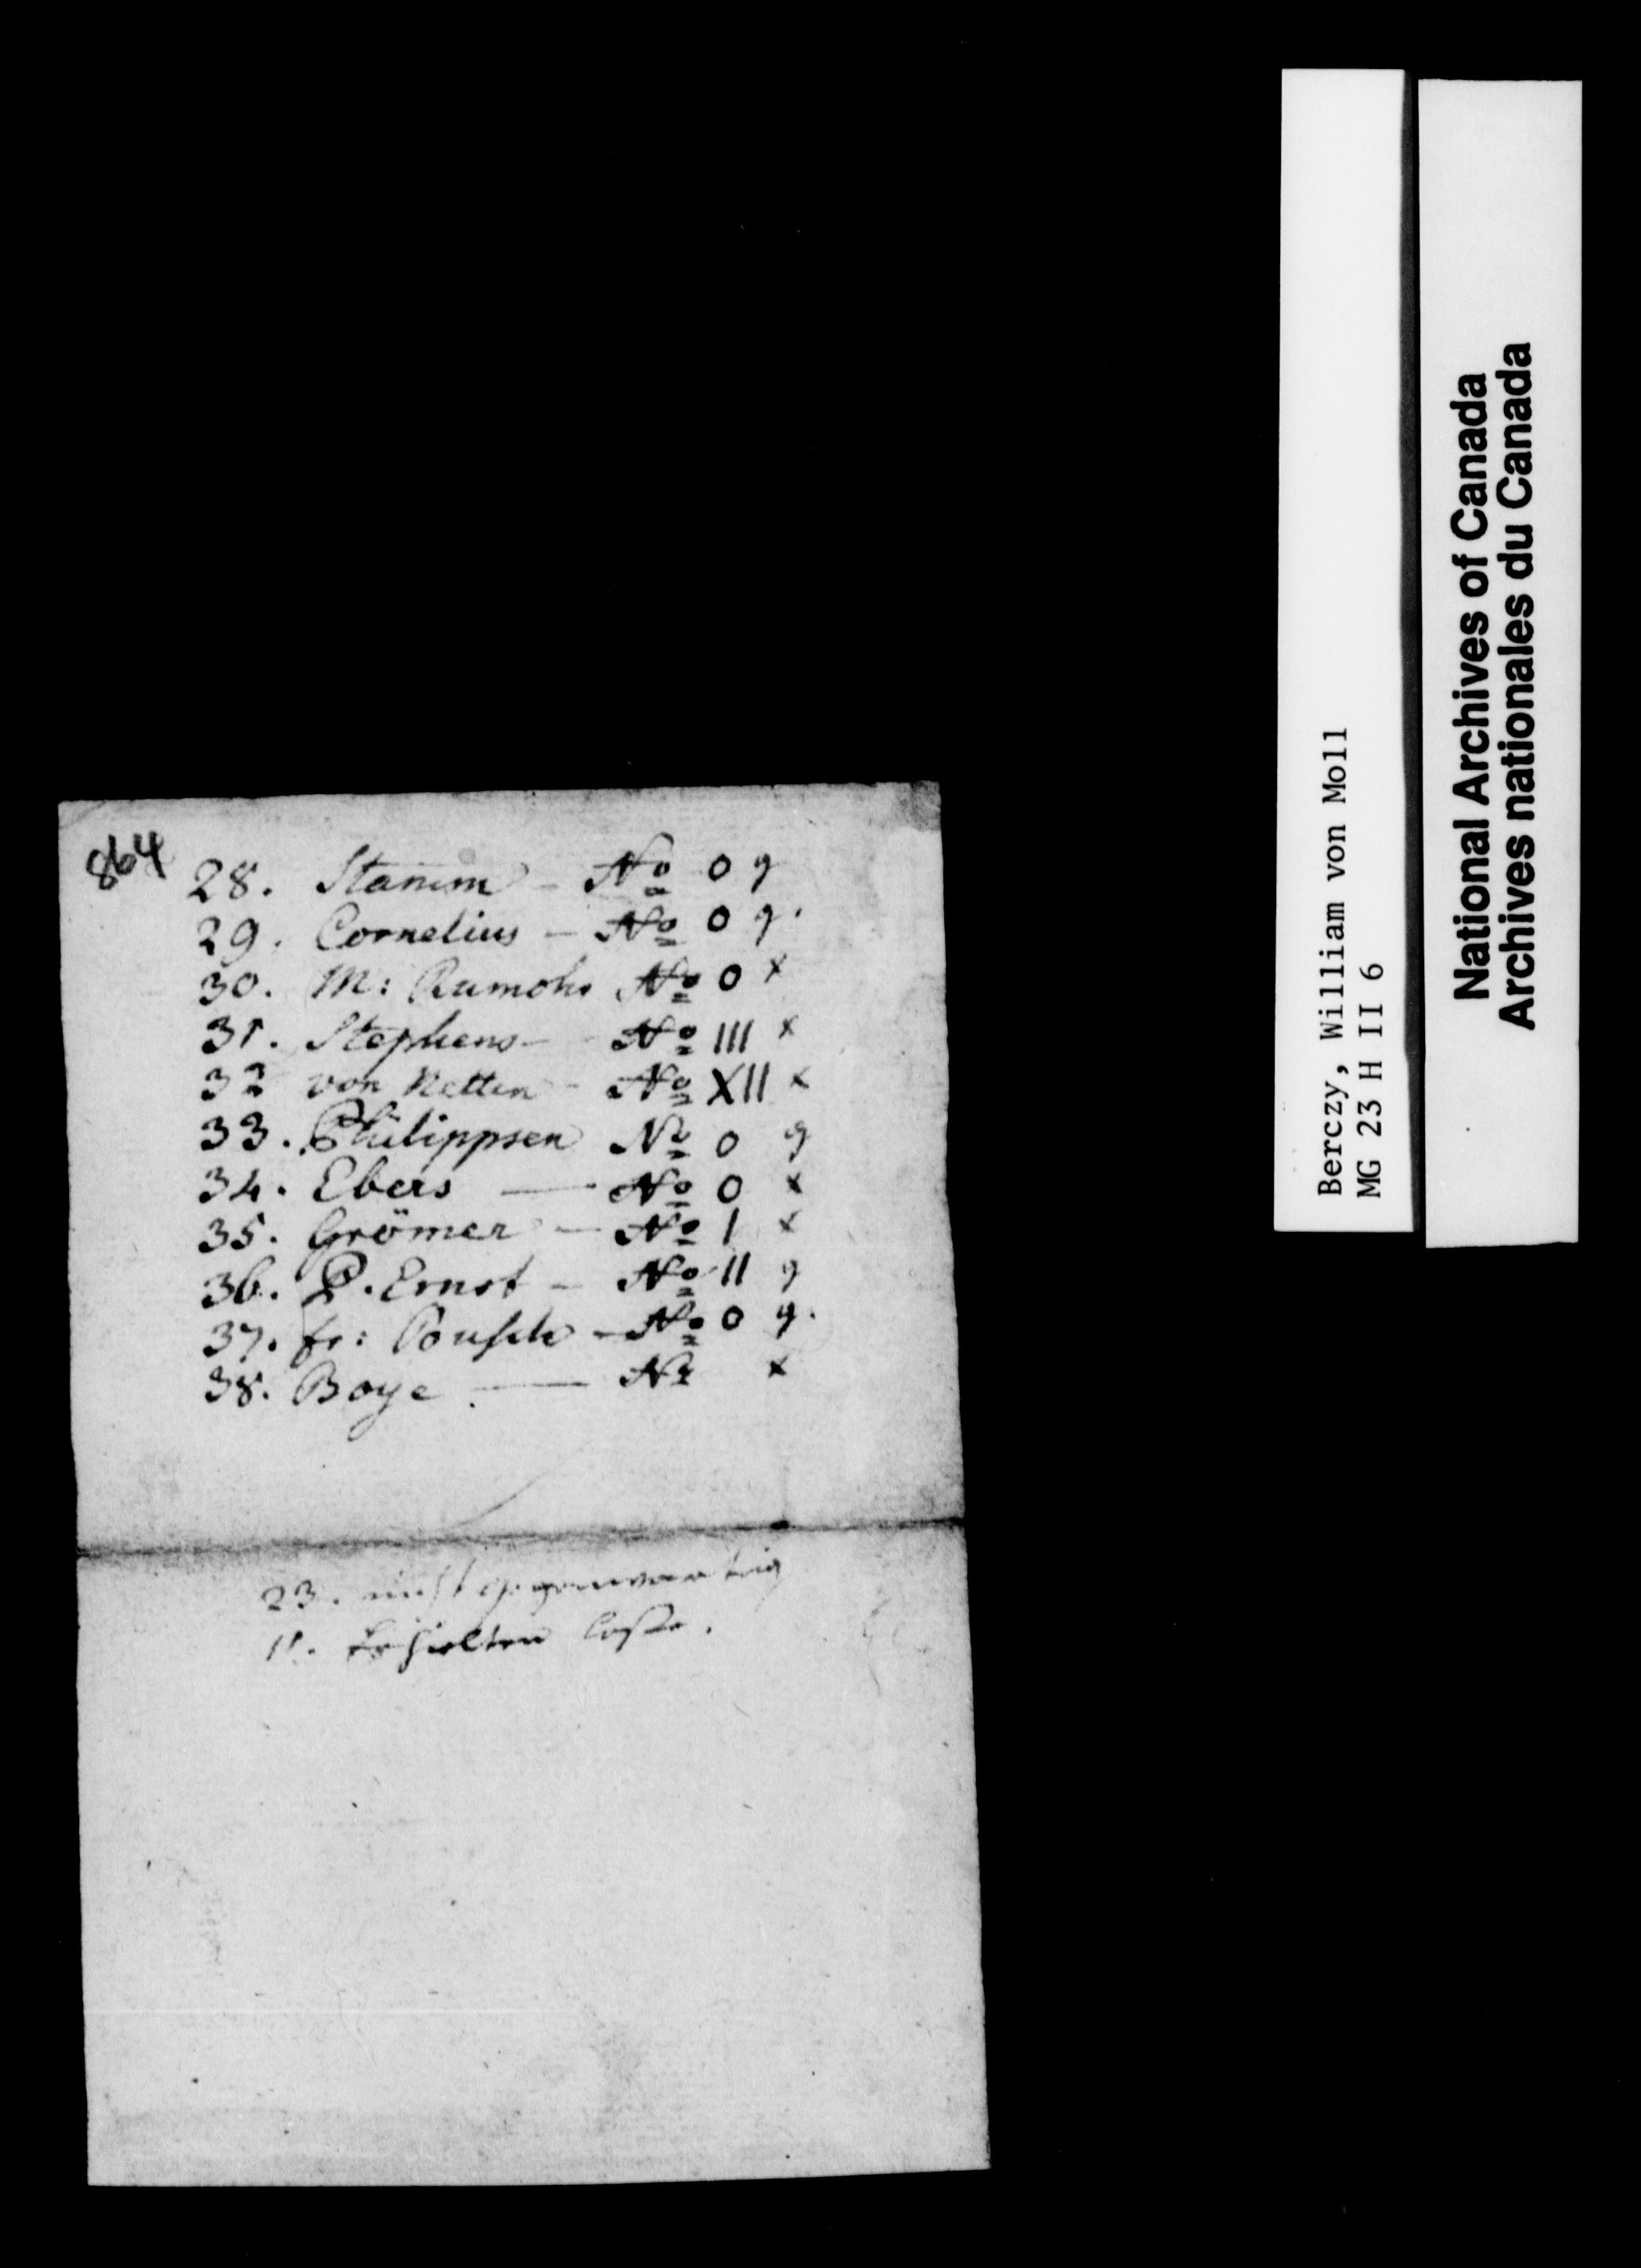 864
28. Stamm - No 0 g
29. Cornelius - No 0 g.
30. M: Rumohr No 0 x
31. Stephens - No III x
32 von Netten - No XII x
33. Philippsen No 0 g
34. Ebers — No 0 x
35. Grömer - No I x
36. P. Ernst - No II g
37. fr: - No 0 g.
38. Boye — No x
23. nicht gegenwartig
11. Erhielten Loße.
Berczy, William von Moll
MG 23 H II 6
National Archives of Canada
Archives nationales du Canada